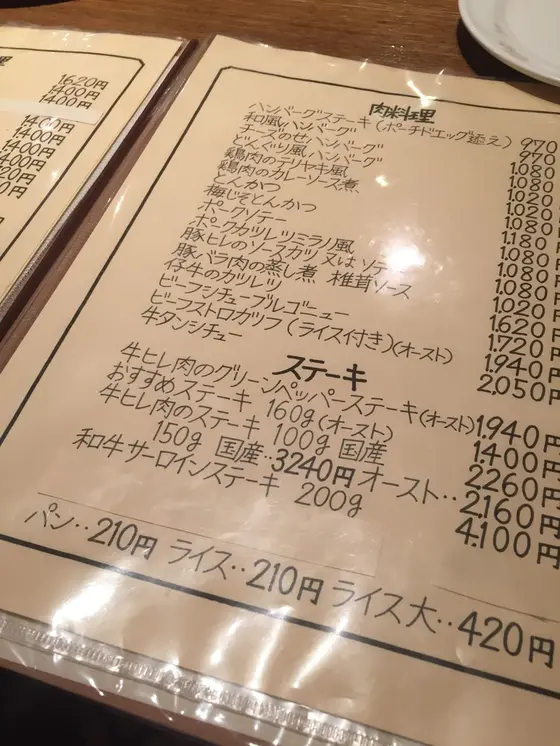 1620円
1400円
1400円
1400円
1400円
1400円
肉料理
ハンバーグステーキ(ポーチドエッグ添え) 970
和風ハンバーグ 970
チーズのせハンバーグ 1.080
どんぐり風ハンバーグ 1.080
鶏肉のテリヤキ風 1.020
鶏肉のカレーソース煮 1.020
とんかつ 1.080
梅じそとんかつ 1.180円
ポークソテー 1.080円
ポークカツレツミラノ風 1.080円
豚ヒレのソースカツ又はソテー 1.080円
豚バラ肉の蒸し煮 椎茸ソース 1.020円
仔牛のカツレツ 1.620円
ビーフシチューブルゴニュー 1.720円
ビーフストロガノフ(ライス付き)(オースト) 1.940円
牛タンシチュー 2.050円
ステーキ
牛ヒレ肉のグリーンペッパーステーキ(オースト) 1.940円
おすすめステーキ 160g(オースト) 1400円
牛ヒレ肉のステーキ 100g 国産 2260円
150g 国産‥3240円 オースト‥2.160円
和牛サーロインステーキ 200g 4.100円
パン‥210円 ライス‥210円 ライス大‥420円